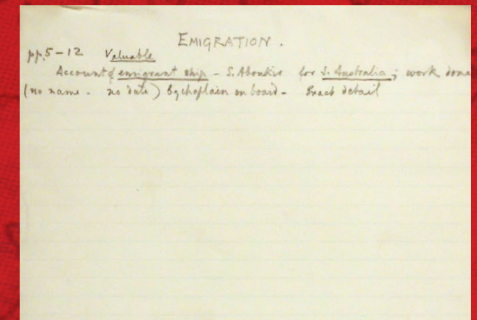 EMIGRATION.
pp. 5-12 Valuable
Account of emigrant ship - S. Aboukir for S. Australia; work done
(no name - no date) by chaplain on board - Exact detail